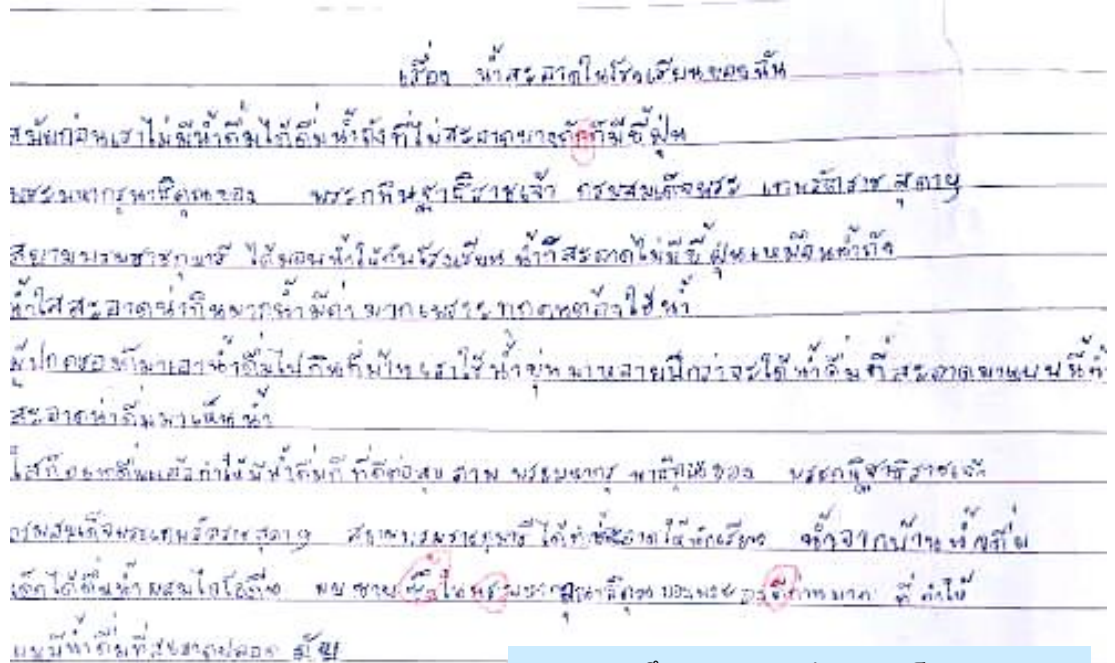 เรื่อง น้ำสะอาดในโรงเรียนของฉัน
สมัยก่อนเราไม่มีน้ำดื่มได้ดื่มน้ำถังที่ไม่สะอาดบางถังก็มีขี้ฝุ่น
พระมหากรุนาธิคุณของ พระกนิษฐาธิราชเจ้า กรมสมเด็จพระ เทพรัตราช สุดาฯ
สยามบรมราชกุมารี ได้มอบน้ำให้กับโรงเรียน น้ำที่สะอาดไม่มีขี้ฝุ่นเหมือนน้ำถัง
น้ำใสสะอาดน่ากินมากน้ำมีค่ามากเพราะทุกคนต้องใช้น้ำ
ผู้ปกครองก็มาเอาน้ำดื่มไปกินที่บ้านเราใช้น้ำขุ่นมาหลายปีกว่าจะได้น้ำดื่มที่สะอาดมาแบบนี้
สะอาดน่าดื่มมาเห็นน้ำ
ใสก็อยากดื่มแล้วทำให้มีน้ำดื่มที่ ที่ดีต่อสุขภาพ พระมหากรุนาธิคุณของ
กรมสมเด็จพระเทพรัตราชสุดาฯ ได้ สะอาดให้นักเรียน น้ำจากบ้าน
เด็กได้ดื่มน้ำผสมไอโอดีน ใน มาก ที่ ทำให้
ผมมีน้ำดื่มที่สะอาดปลอด ภัย